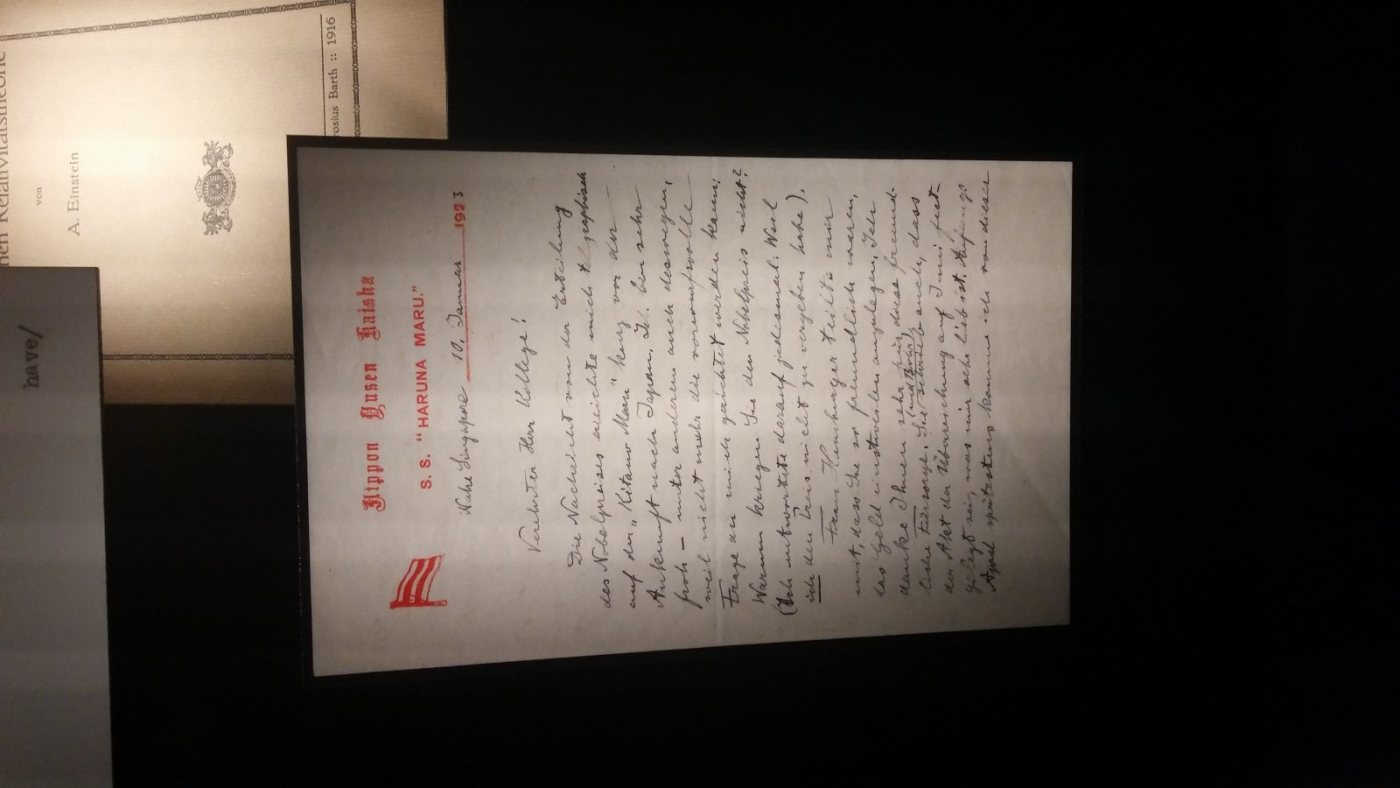 Nippon Yusen Kaisha
S. S. "HARUNA MARU."
Nahe Singapore 10. Januar 1923
Verehrter Herr Kollege!
Die Nachricht von der Erteilung
des Nobelpreises erreichte mich telegraphisch
auf der "Kitano Maru" kurz vor der
Ankunft nach Japan. Ich bin sehr
froh – unter anderem auch deswegen,
weil nicht mehr die vorwurfsvolle
Frage an mich gerichtet werden kann:
Warum kriegen Sie den Nobelpreis nicht?
(Ich antwortete darauf jedesmal: Weil
ich den Preis nicht zu vergeben habe).
Frau Hamburger teilte mir
mit, dass Sie so freundlich waren,
das Geld einstweilen anzulegen. Ich
danke Ihnen sehr für diese freund-
liche Fürsorge. Sie schrieb auch, dass
der Akt der Überreichung auf Juni fest
gelegt sei, was mir sehr lieb ist. Anfangs
April spätestens komme ich von dieser
nen Relativitätstheorie
von
A. Einstein
rosius Barth :: 1916
have/